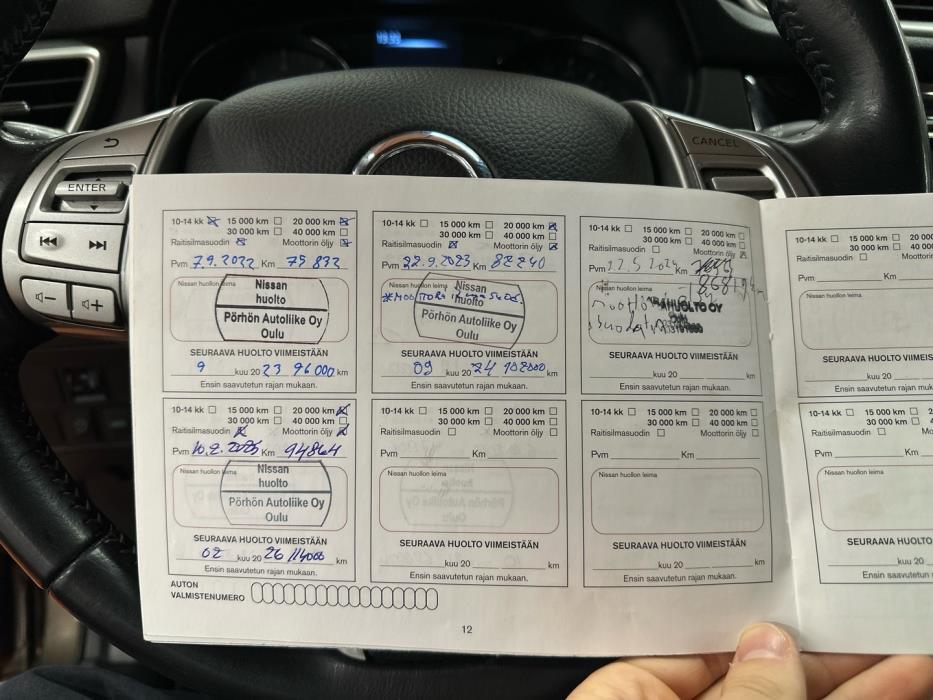 ENTER
CANCEL
10-14 kk 15 000 km 20 000 km
30 000 km 40 000 km
Raitisilmasuodin Moottorin öljy
Pvm 7.9.2022 Km 75 832
Nissan huollon leima
Nissan
huolto
Pörhön Autoliike Oy
Oulu
SEURAAVA HUOLTO VIIMEISTÄÄN
9 kuu 20 23 96 000 km
Ensin saavutetun rajan mukaan.
10-14 kk 15 000 km 20 000 km
30 000 km 40 000 km
Raitisilmasuodin Moottorin öljy
Pvm 22.9.2023 Km 82240
Nissan huollon leima
Nissan
huolto
Pörhön Autoliike Oy
Oulu
SEURAAVA HUOLTO VIIMEISTÄÄN
09 kuu 20 24 102000 km
Ensin saavutetun rajan mukaan.
10-14 kk 15 000 km 20 000 km
30 000 km 40 000 km
Raitisilmasuodin Moottorin öljy
Pvm 12.5 2024 Km
Nissan huollon leima
HUOLTO OY
SEURAAVA HUOLTO VIIMEISTÄÄN
kuu 20 km
Ensin saavutetun rajan mukaan.
15 000 km
30 000 km
Raitisilmasuodin
Pvm Km
Nissan huollon leima
SEURAAVA HUOLTO VIIMEIS
kuu 20
Ensin saavutetun rajan
10-14 kk 15 000 km 20 000 km
30 000 km 40 000 km
Raitisilmasuodin Moottorin öljy
Pvm 10.2.2025 Km 94864
Nissan huollon leima
Nissan
huolto
Pörhön Autoliike Oy
Oulu
SEURAAVA HUOLTO VIIMEISTÄÄN
02 kuu 20 26 114000 km
Ensin saavutetun rajan mukaan.
10-14 kk 15 000 km 20 000 km
30 000 km 40 000 km
Raitisilmasuodin Moottorin öljy
Pvm Km
Nissan huollon leima
SEURAAVA HUOLTO VIIMEISTÄÄN
kuu 20 km
Ensin saavutetun rajan mukaan.
10-14 kk 15 000 km 20 000 km
30 000 km 40 000 km
Raitisilmasuodin Moottorin öljy
Pvm Km
Nissan huollon leima
SEURAAVA HUOLTO VIIMEISTÄÄN
kuu 20 km
Ensin saavutetun rajan mukaan.
10-14 kk 15 000 km 2
30 000 km 4
Raitisilmasuodin Moo
Pvm Km
Nissan huollon leima
SEURAAVA HUOLTO
kuu 20
Ensin saavutetun rajan
AUTON
VALMISTENUMERO
12